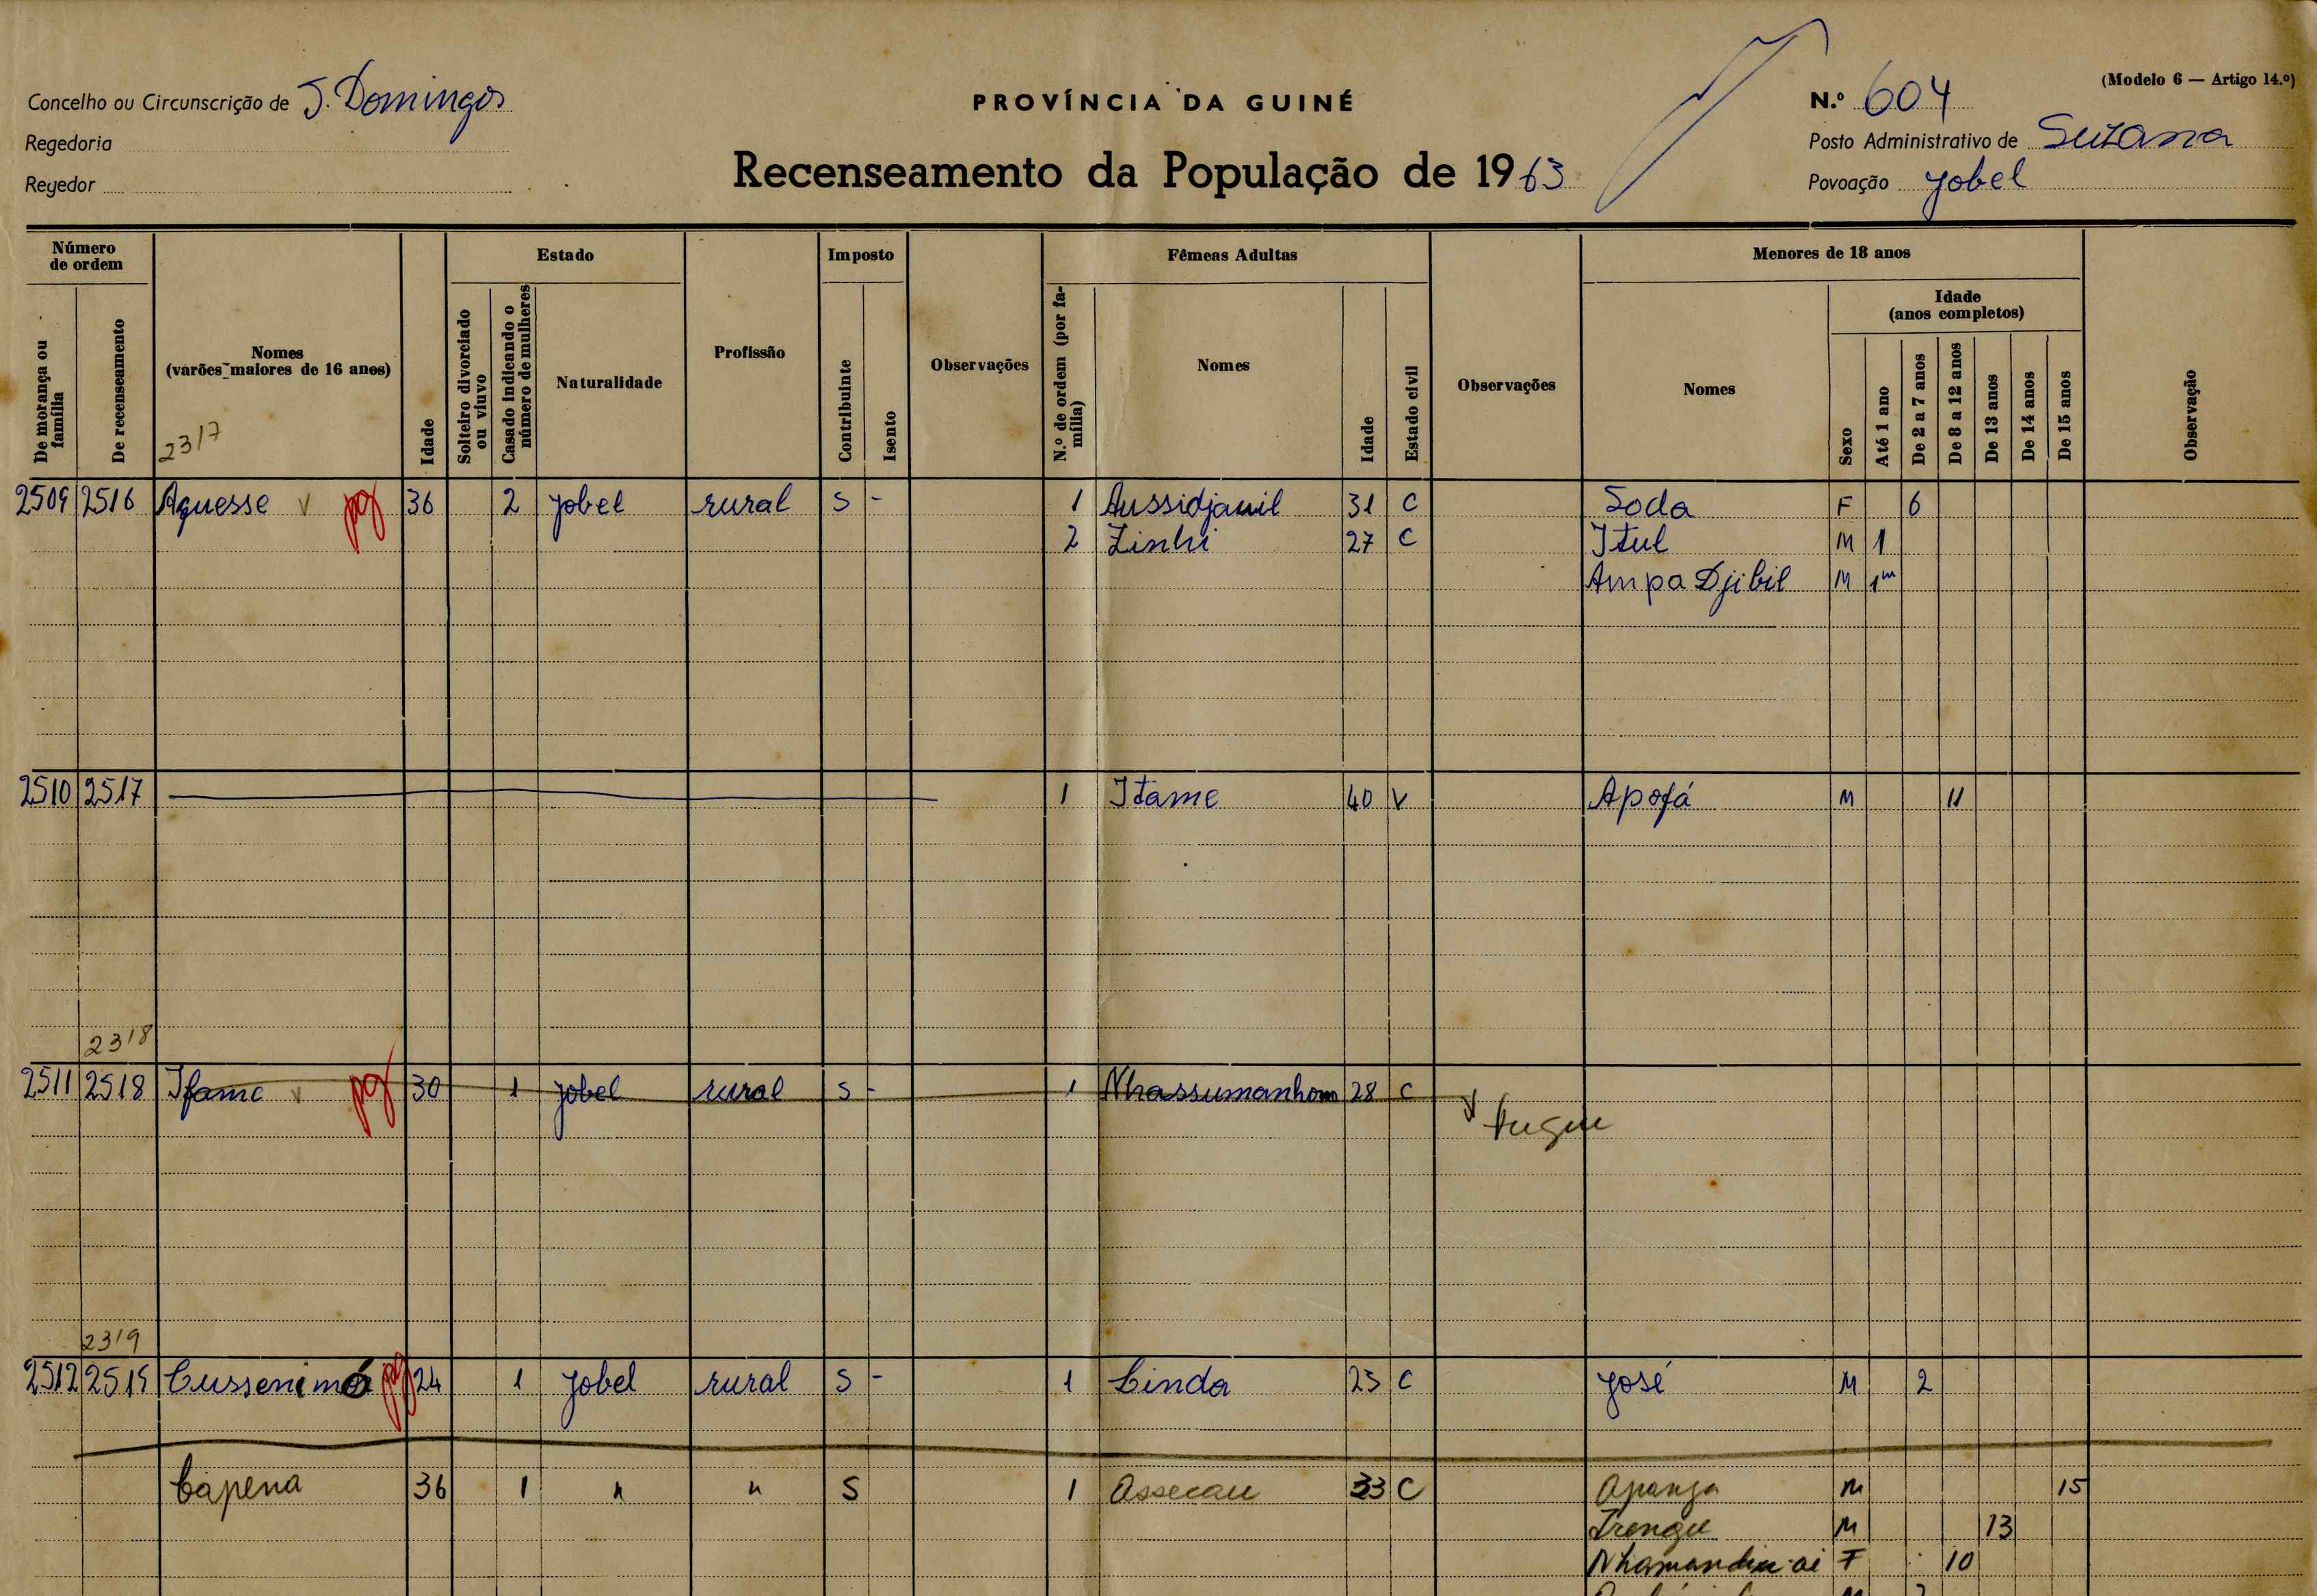 Concelho ou Circunscrição de S. Domingos
Regedoria
Regedor
PROVÍNCIA DA GUINÉ
Recenseamento da População de 1963
(Modelo 6 — Artigo 14.º)
N.º 604
Posto Administrativo de Suzana
Povoação Jobel
Número de ordem
De morança ou família
De recenseamento
Nomes (varões maiores de 16 anos)
2317
Idade
Estado
Solteiro divorciado ou viuvo
Casado indicando o número de mulheres
Naturalidade
Profissão
Imposto
Contribuinte
Isento
Observações
Fêmeas Adultas
N.º de ordem (por família)
Nomes
Idade
Estado civil
Observações
Menores de 18 anos
Nomes
Sexo
Idade (anos completos)
Até 1 ano
De 2 a 7 anos
De 8 a 12 anos
De 13 anos
De 14 anos
De 15 anos
Observação
2509 2516 Aguesse v pg 36 2 Jobel rural S - 1 Aussidjanil 31 C Soda F 6
2 Zinhi 27 C Itul M 1
Ampa Djibil M 1m
2510 2517 1 Itame 40 V Apofá M 11
2318
2511 2518 Ifame v pg 30 1 Jobel rural S - 1 Nhassumanhom 28 C
2319
2512 2519 Cussenimó pg 24 1 Jobel rural S - 1 Cinda 23 C José M 2
Capena 36 1 " " S 1 Assecau 33 C Apanga M 15
M 13
F 10